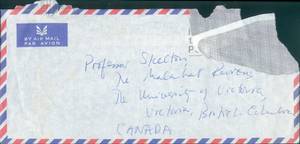 BY AIR MAIL
PAR AVION
Professor Skelton
The Malahat Review
The University of Victoria
Victoria, British Columbia
CANADA